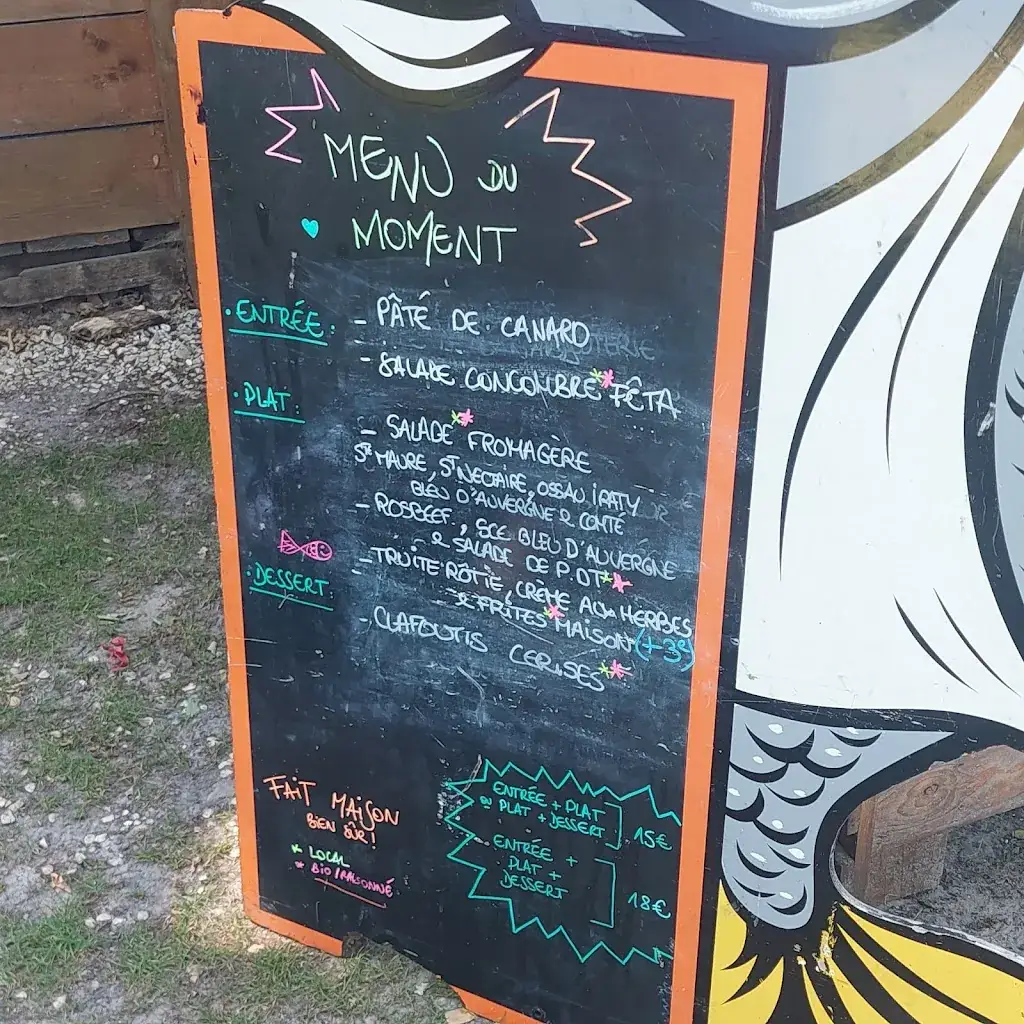 MENU DU
MOMENT
• ENTRÉE:
- PÂTÉ DE CANARD
- SALADE CONCOMBRE** FÊTA
• PLAT:
- SALADE** FROMAGÈRE
STE MAURE, ST NECTAIRE, OSSAU IRATY
BLEU D'AUVERGNE & COMTÉ
- ROSBEEF, SCE BLEU D'AUVERGNE
& SALADE DE P.DT**
- TRUITE RÔTIE, CRÈME AUX HERBES
& FRITES* MAISON (+3€)
• DESSERT:
- CLAFOUTIS CERISES**
FAIT MAISON
BIEN SÛR!
* LOCAL
* BIO/RAISONNÉ
ENTRÉE + PLAT
OU PLAT + DESSERT
15€
ENTRÉE +
PLAT +
DESSERT
18€